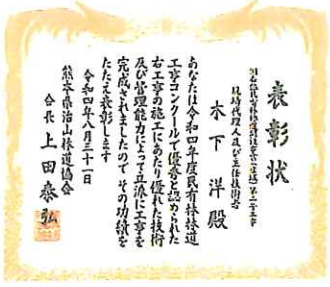 表彰状
現場代理人及び主任技術者
木下 洋 殿
あなたは令和四年度民有林林道
工事コンクールで優秀と認められた
右工事の施工にあたり優れた技術
及び管理能力によって立派に工事を
完成されましたのでその功績を
たたえ表彰します
令和四年八月三十一日
熊本県治山林道協会
会長 上田泰弘